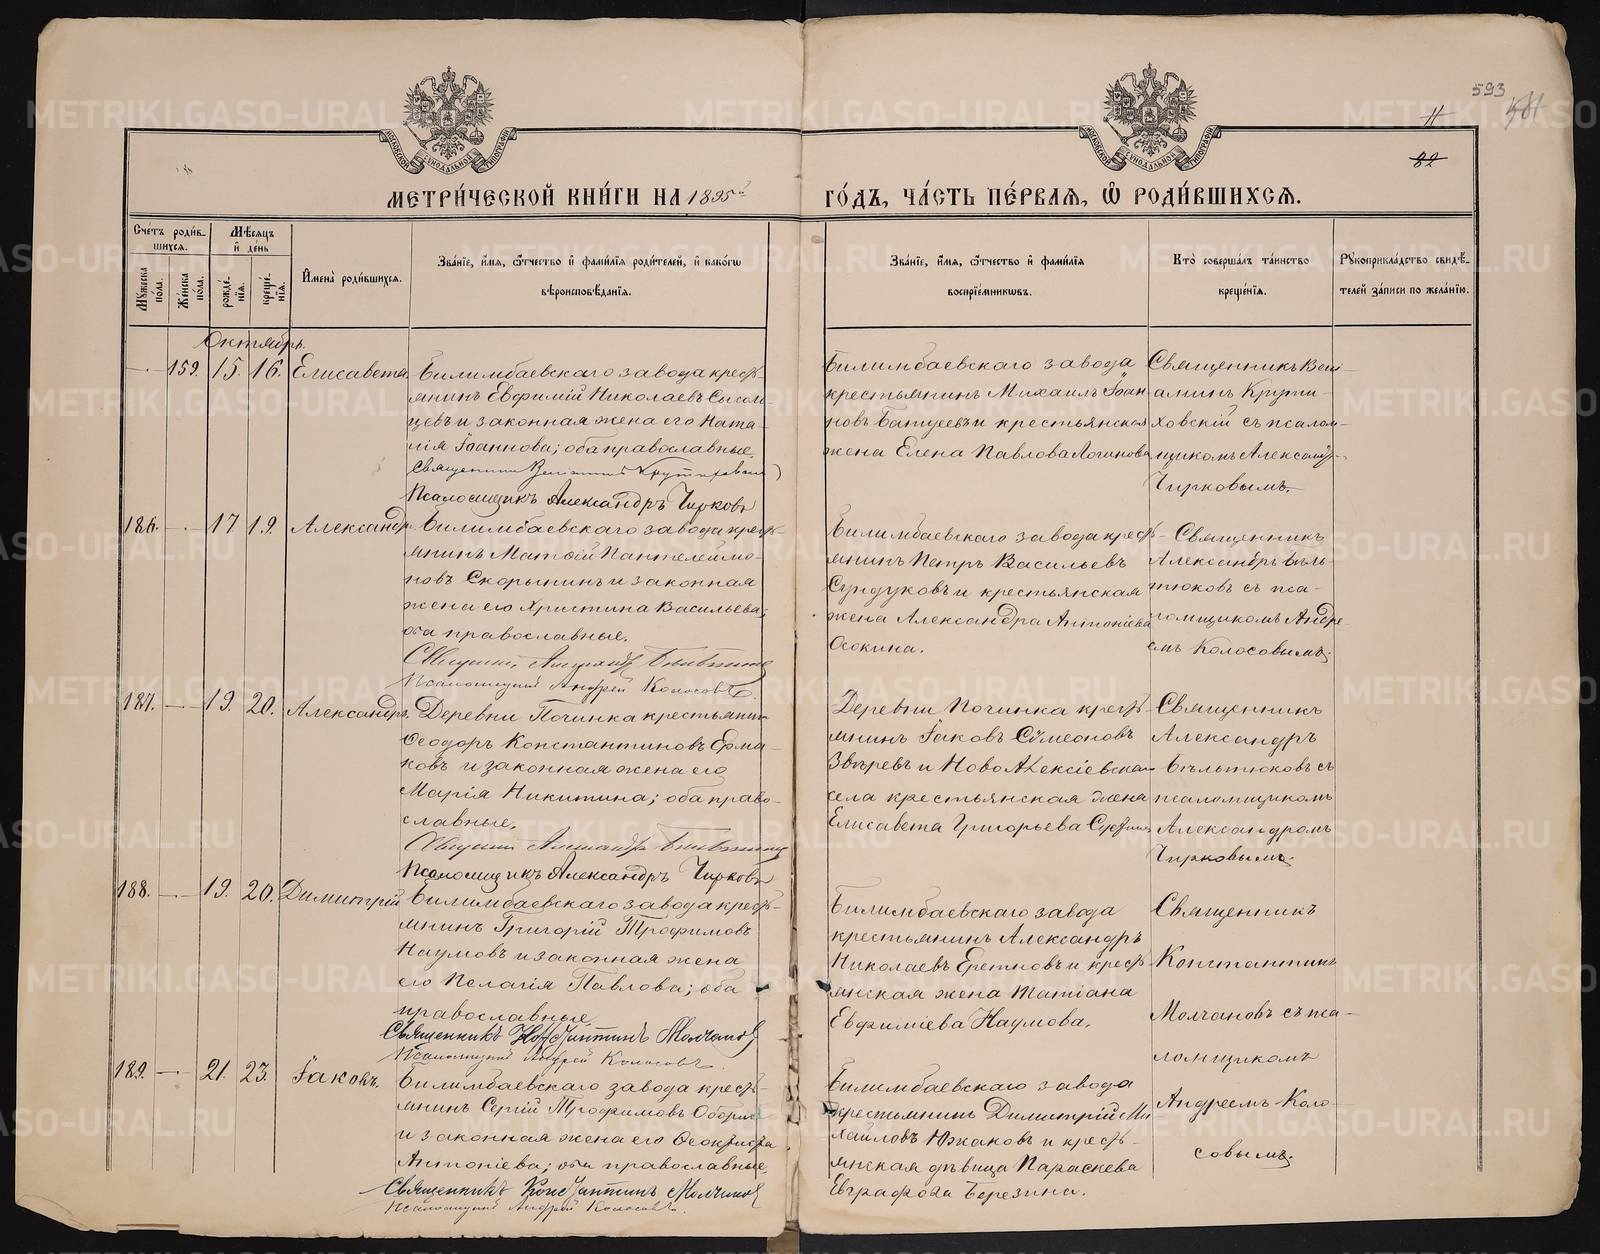 593
581
11
82
МОСКОВСКОЙ СѴНОДАЛЬНОЙ ТИПОГРАФІИ
МОСКОВСКОЙ СѴНОДАЛЬНОЙ ТИПОГРАФІИ
МЕТРИ́ЧЕСКОЙ КНИ́ГИ НА 1895й ГО́ДЪ, ЧА́СТЬ ПЕ́РВАѦ, Ѽ РОДИ́ВШИХСѦ.
Сче́тъ роди́в-
шихся.
Мꙋ́жеска по́ла.
Же́нска по́ла.
Мѣ́сяцъ
и҆ де́нь
рожде́-
нїя.
креще́-
нїя.
И҆мена̀ роди́вшихся.
Зва́нїе, и҆́мя, ѻ҆́тчество и҆ фами́лїя роди́телей, и҆ како́гѡ
вѣроисповѣ́данїя.
Зва́нїе, и҆́мя, ѻ҆́тчество и҆ фами́лїя
воспрїе́мниковъ.
Кто̀ соверша́лъ та́инство
креще́нїя.
Рꙋкоприкла́дство свидѣ́-
телей за́писи по жела́нїю.
Октябрь.
— 159. 15. 16. Елисавета.
Билимбаевскаго завода кресть-
янинъ Евфимій Николаевъ
цевъ и законная жена его Ната-
лія Іоаннова; оба православные.
Священникъ Веніаминъ Крутиховскій
Псаломщикъ Александръ Чирковъ
Билимбаевскаго завода
крестьянинъ Михаилъ Іоан
новъ Батуевъ и крестьянская
жена Елена Павлова Логинова
Священникъ Вені-
аминъ Крути-
ховскій съ псалом-
щикомъ Александр-
Чирковымъ.
186. — 17 19. Александр
Билимбаевскаго завода кресть-
янинъ Матѳій Пантелеймо-
новъ Скорынинъ и законная
жена его Христина Васильева;
оба православные.
Священникъ Александръ Бѣльтюковъ
Псаломщикъ Андрей Колосовъ.
Билимбаевскаго завода кресть-
янинъ Петръ Васильевъ
Сундуковъ и крестьянская
жена Александра Антоніева
Осокина.
Священникъ
Александръ Бѣль-
тюковъ съ пса-
ломщикомъ Андре-
емъ Колосовымъ.
187. — 19. 20. Александръ.
Деревни Починка крестьянинъ
Ѳеодоръ Константиновъ Ерма-
ковъ и законная жена его
Марія Никитина; оба право-
славные.
Священникъ Александръ Бѣльтюковъ
Псаломщикъ Александръ Чирковъ
Деревни Починка кресть-
янинъ Іаковъ Сѵмеоновъ
Звѣревъ и НовоАлексіевска
села крестьянская жена
Елисавета Григорьева
Священникъ
Александръ
Бѣльтюковъ съ
псаломщикомъ
Александромъ
Чирковымъ.
188. — 19. 20. Димитрій
Билимбаевскаго завода кресть-
янинъ Григорій Трофимовъ
Наумовъ и законная жена
его Пелагія Павлова; оба
православные
Священникъ Константинъ Молчановъ
Псаломщикъ Андрей Колосовъ.
Билимбаевскаго завода
крестьянинъ Александръ
Николаевъ Еретновъ и кресть-
янская жена Татіана
Евфиміева Наумова.
Священникъ
Константинъ
Молчановъ съ пса-
ломщикомъ
Андреемъ Коло-
совымъ.
189. — 21. 23. Іаковъ.
Билимбаевскаго завода кресть-
янинъ Сергій Трофимовъ
и законная жена его Ѳеоктиста
Антоніева; оба православные
Священникъ Константинъ Молчановъ
Псаломщикъ Андрей Колосовъ.
Билимбаевскаго завода
крестьянинъ Димитрій Ми
хайловъ Южаковъ и кресть-
янская дѣвица Параскева
Евграфова Березина.
METRIKI.GASO-URAL.RU